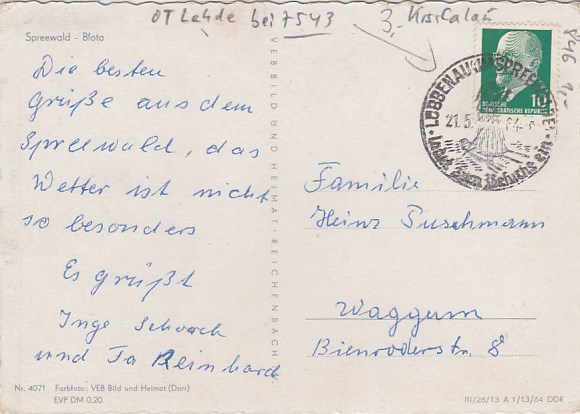 OT Lehde bei 7543
3. Krs. Calau
Spreewald - Błota
Die besten
Grüße aus dem
Spreewald, das
Wetter ist nicht
so besonders
Es grüßt
Inge Schorch
und Fa Reinhard
VEB BILD UND HEIMAT · REICHENBACH
10
DEUTSCHE
DEMOKRATISCHE REPUBLIK
LÜBBENAU (SPREEWALD)
21.5. 64
ladet zum Besuche ein
Familie
Heinz Puschmann
Waggum
Bienroderstr. 8
Nr. 4071 Farbfoto: VEB Bild und Heimat (Darr)
EVP DM 0,20
III/26/13 A 1/13/64 DDR